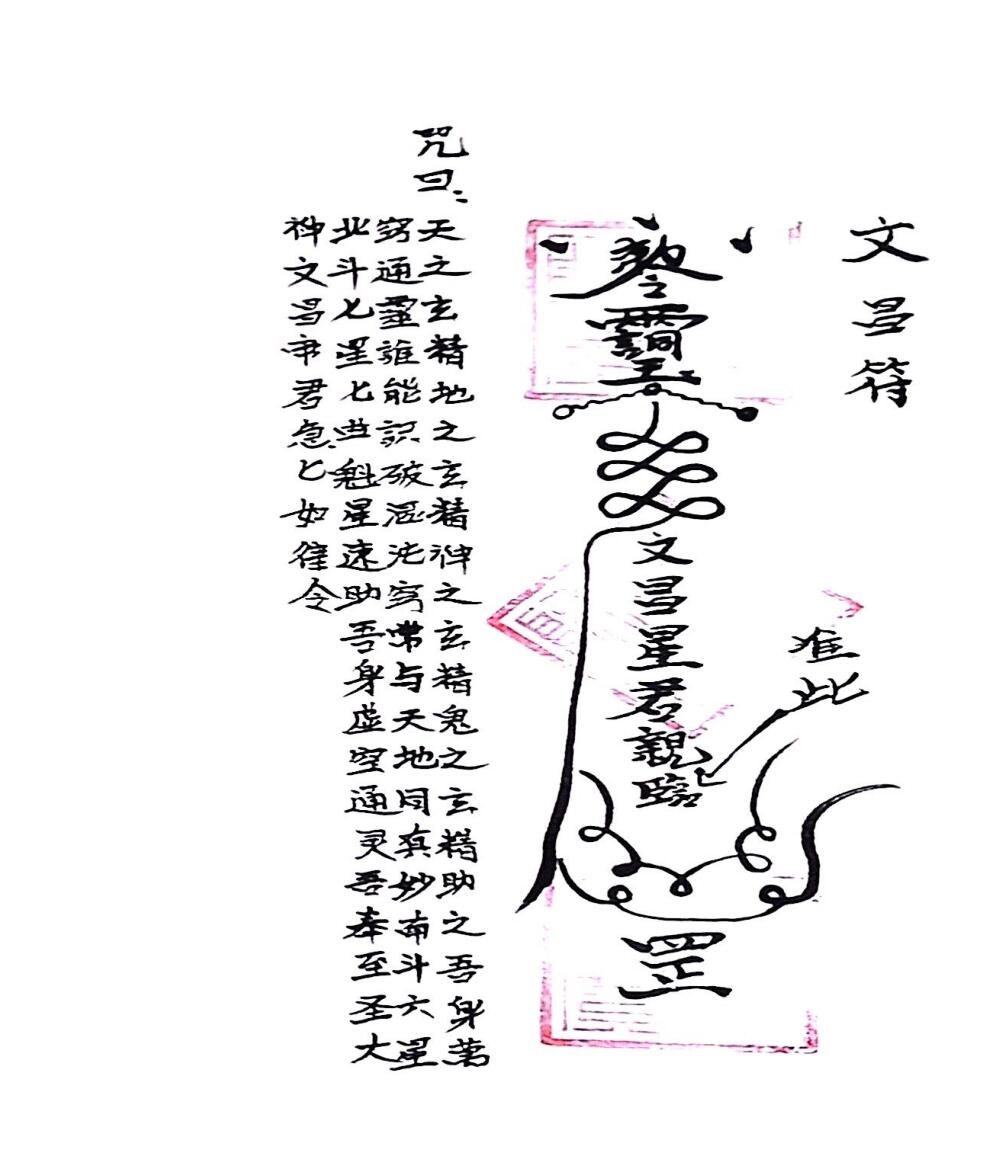 文昌符
敕令
文昌星君親臨
准此
罡
咒曰:
天之玄精地之玄精神之玄精鬼之玄精助之吾身萬
窍通靈誰能識破混沌窍带与天地同真妙南斗六星
北斗七星七典魁星速助吾身虚空通灵吾奉至圣大
神文昌帝君急匕如律令